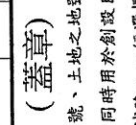 (蓋章)
號、土地之地號
同時用於創設